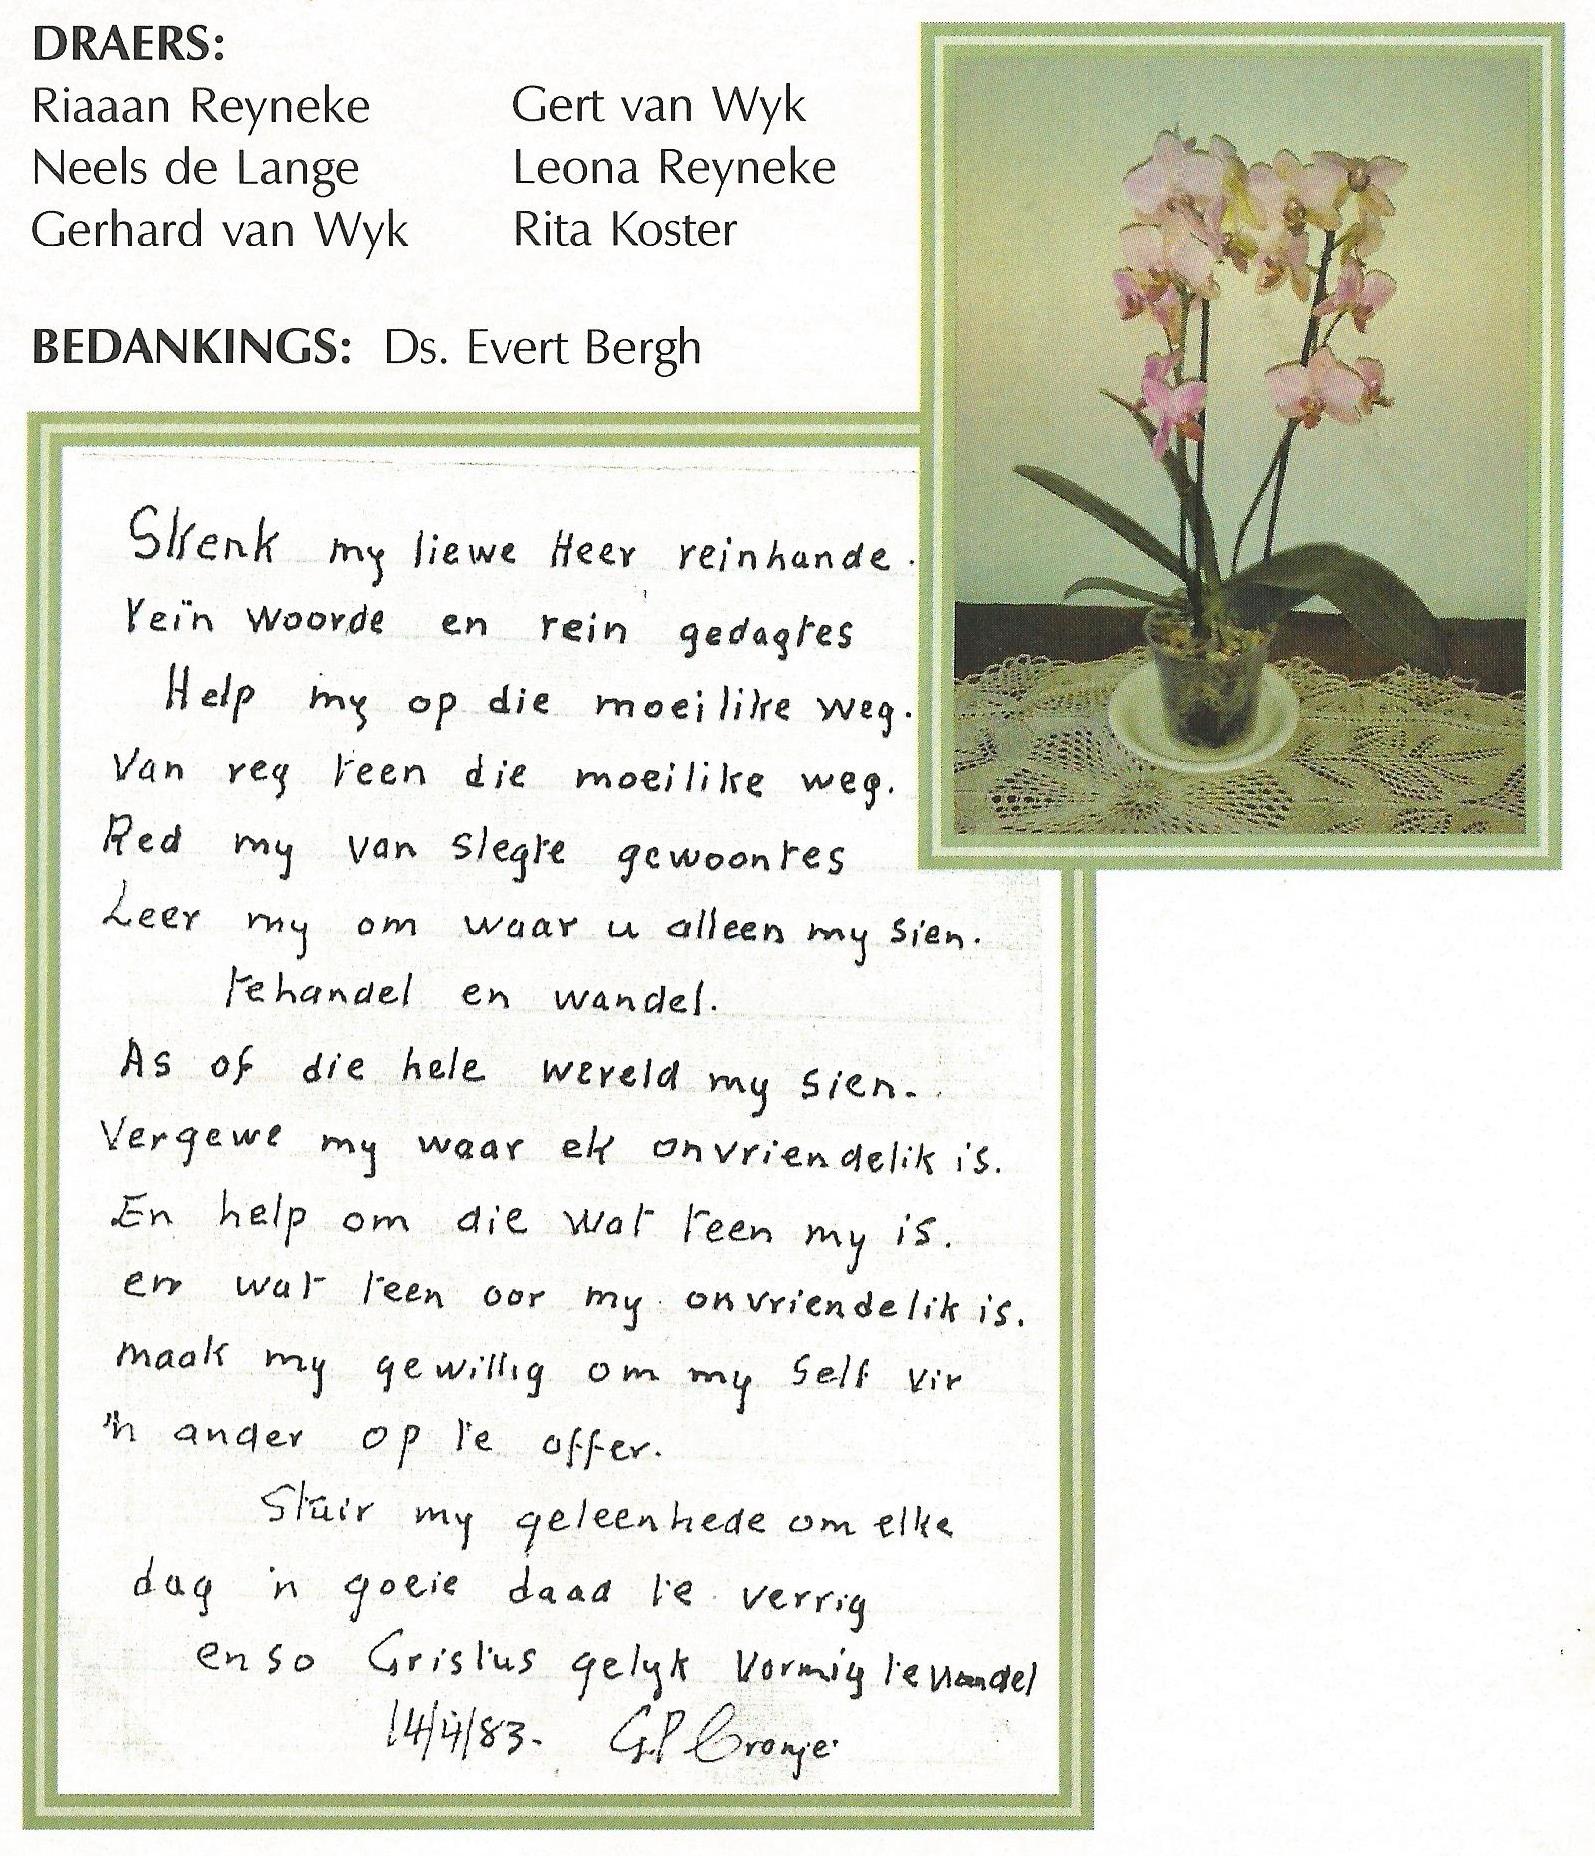 DRAERS:
Riaaan Reyneke
Neels de Lange
Gerhard van Wyk
Gert van Wyk
Leona Reyneke
Rita Koster
BEDANKINGS: Ds. Evert Bergh
Skenk my liewe Heer reinhande.
reïn woorde en rein gedagtes
Help my op die moeilike weg.
Van reg teen die moeilike weg.
Red my van slegte gewoontes
Leer my om waar u alleen my sien.
tehandel en wandel.
As of die hele wereld my sien.
Vergewe my waar ek onvriendelik is.
En help om die wat teen my is.
en wat teen oor my onvriendelik is.
maak my gewillig om my self vir
'n ander op te offer.
Stuir my geleenhede om elke
dag 'n goeie daad te verrig
en so Cristus gelyk vormig te wandel
14/4/83. G.P Cronje